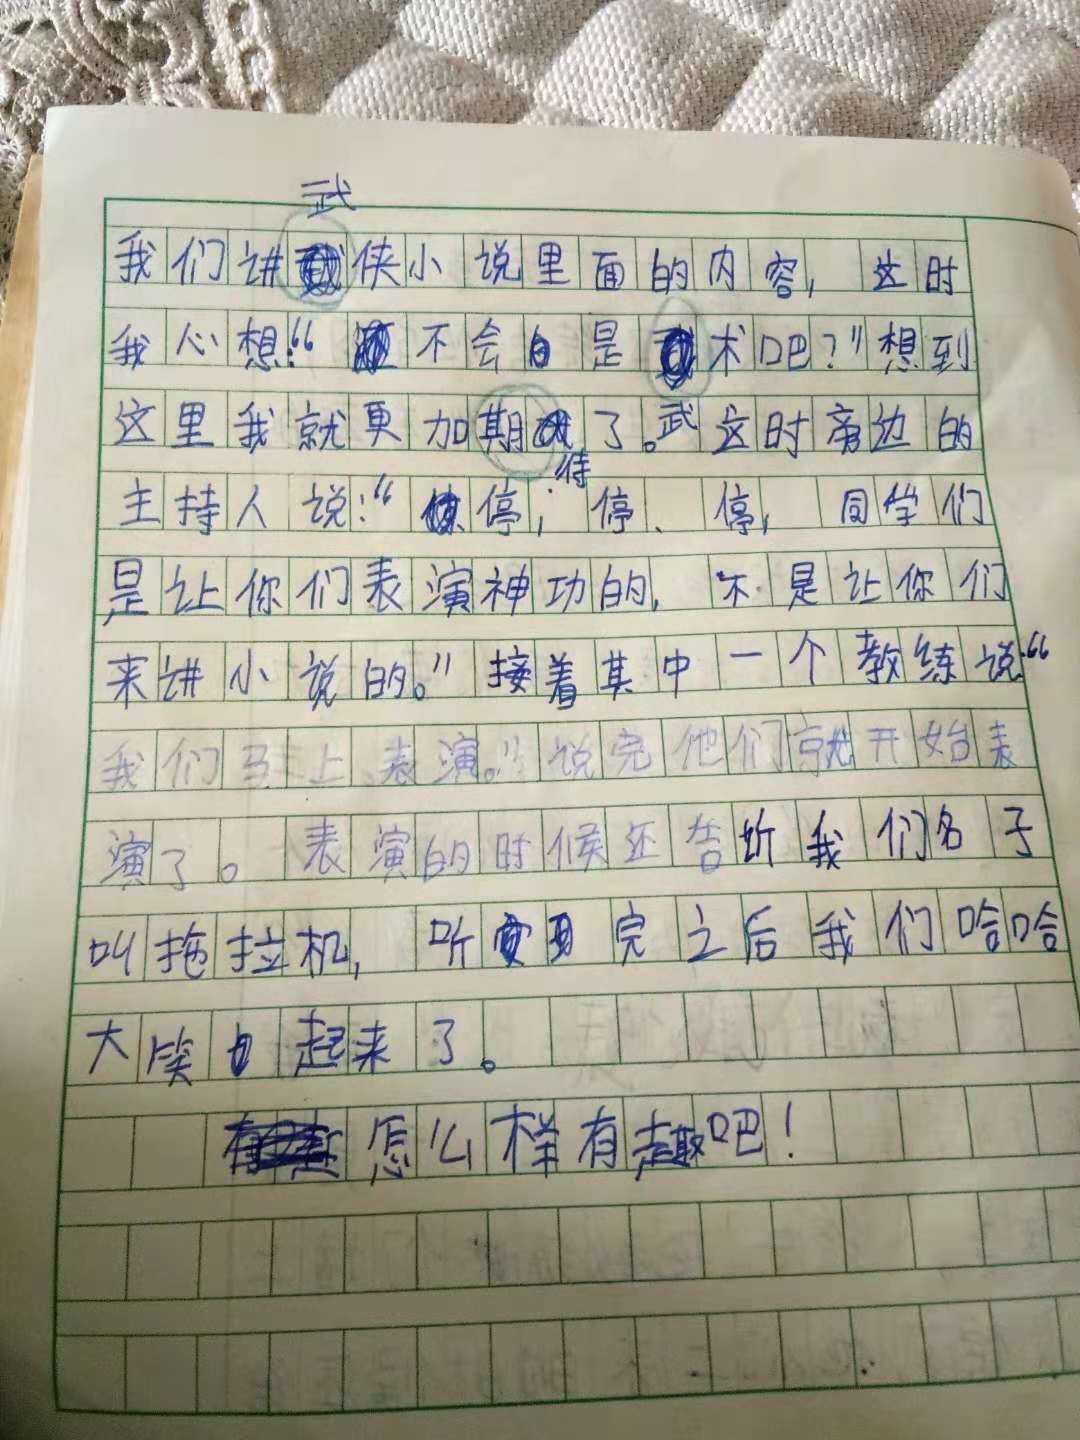 武
我们讲侠小说里面的内容，这时
我心想：“不会是术吧？”想到
这里我就更加期了。武这时旁边的
待
主持人说：“停，停、停，同学们
是让你们表演神功的，不是让你们
来讲小说的。”接着其中一个教练说：“
我们马上表演。”说完他们就开始表
演了。表演的时候还告䜣我们名子
叫拖拉机，听完之后我们哈哈
大笑起来了。
怎么样有趣吧！